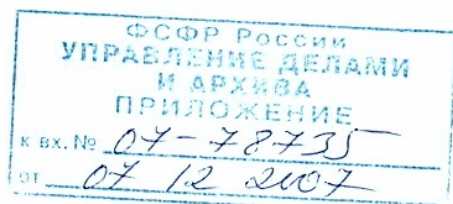 ФСФР России
УПРАВЛЕНИЕ ДЕЛАМИ
И АРХИВА
ПРИЛОЖЕНИЕ
к вх. № 07-78735
от 07 12 2007